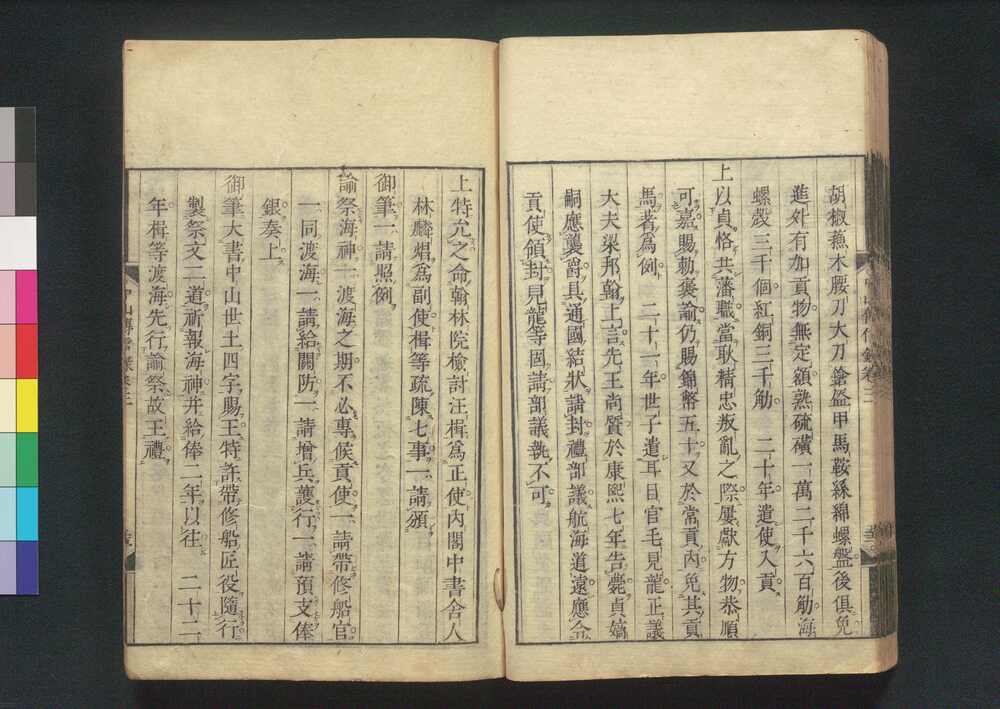 胡椒蘓木腰刀大刀鎗盔甲馬鞍絲綿螺盤後俱免
進外有加貢物無定額熟硫磺一萬二千六百觔海
螺殼三千個紅銅三千觔　二十年遣使入貢
上以貞恪共藩職當耿精忠叛亂之際屢獻方物恭順
可嘉賜勅褒諭仍賜錦幣五十又於常貢內免其貢
馬著爲例　二十一年世子遣耳目官毛見龍正議
大夫梁邦翰上言先王尚質於康熙七年告薨貞嫡
嗣應襲爵具通國結狀請封禮部議航海道遠應令
貢使領封見龍等固請部議執不可
上特允之命翰林院檢討汪楫爲正使內閣中書舍人
林麟焻爲副使楫等疏陳七事一請頒
御筆一請照例
諭祭海神一渡海之期不必專候貢使一請帶修船官
一同渡海一請給關防一請增兵護行一請預支俸
銀奏上
御筆大書中山世土四字賜王特許帶修船匠役隨行
製祭文二道祈報海神并給俸二年以往　二十二
年楫等渡海先行諭祭故王禮